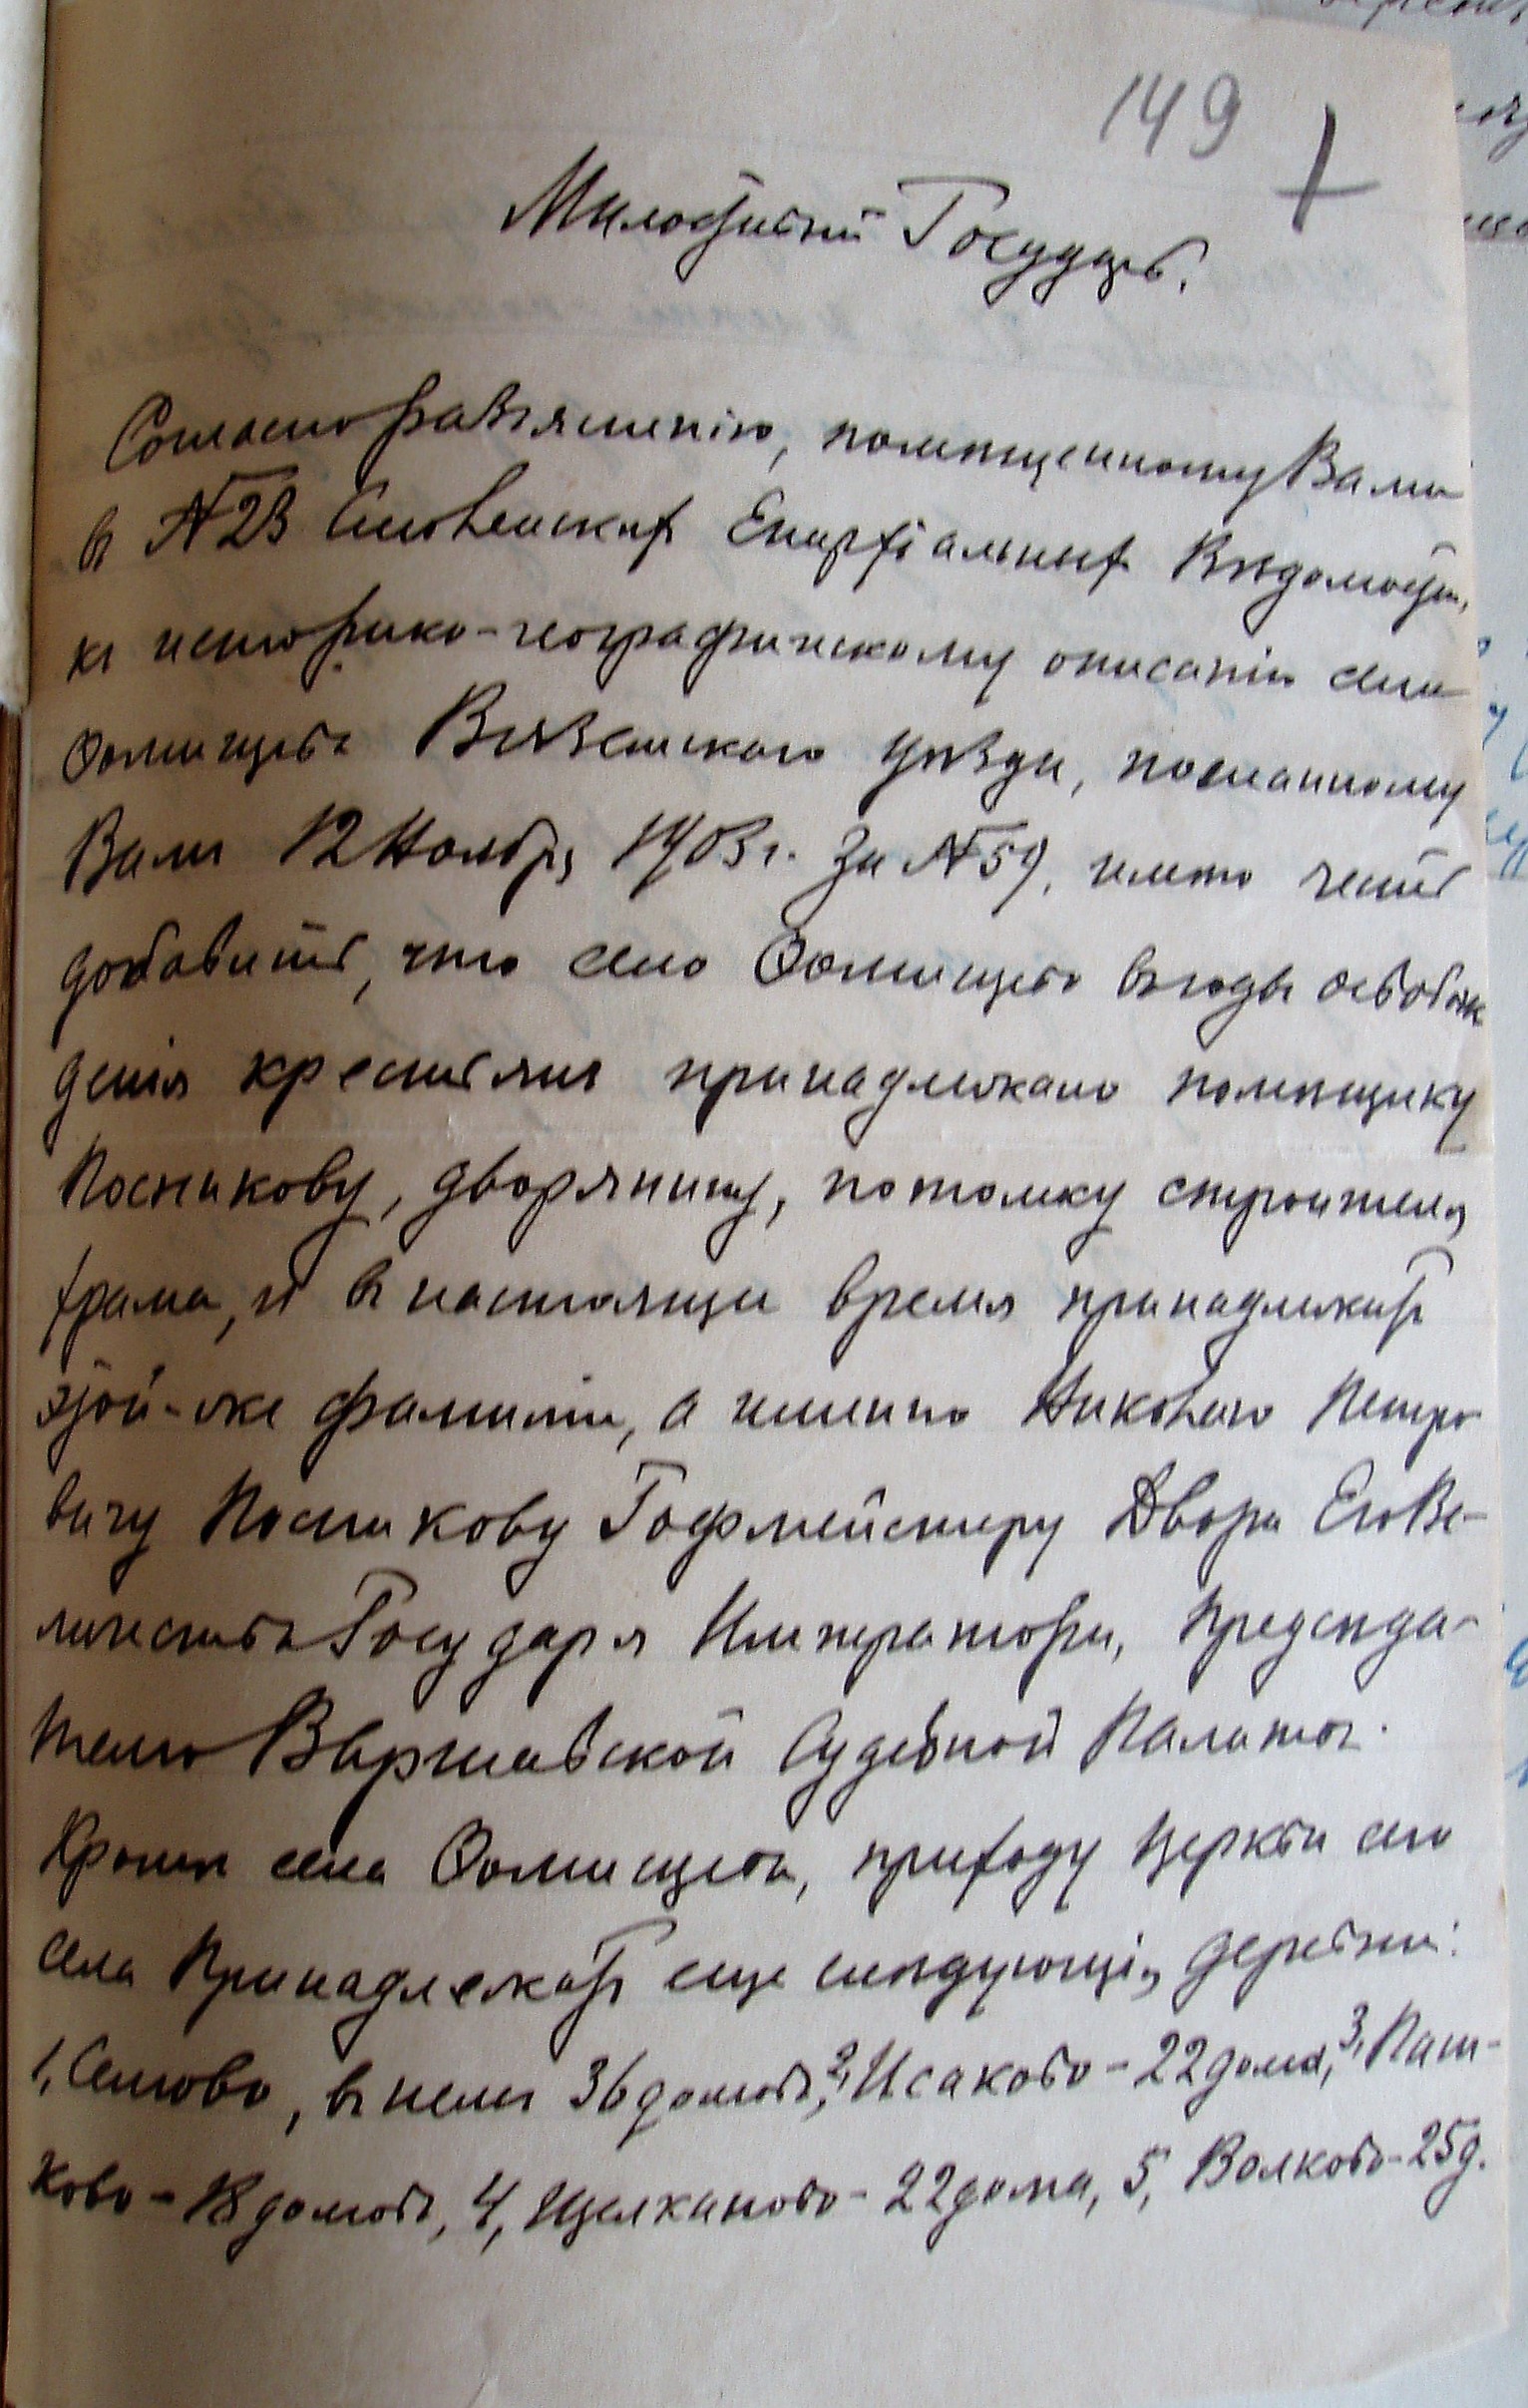 149
Милостивый Государь.
Согласно разъясненію, помѣщенному Вами
въ №23 Смоленскихъ Епархіальныхъ Вѣдомостей,
къ историко-географическому описанію села
Вяземскаго уѣзда, посланному
Вамъ 12 Ноября 1903 г. за №59, имѣю честь
добавить, что село въ годъ освобож
денія крестьянъ принадлежало помѣщику
Посникову, дворянину, потомку строителя
храма, и въ настоящее время принадлежитъ
этой-же фамиліи, а именно Николаю Петро
вичу Посникову Гофмейстеру Двора Его Ве-
личества Государя Императора, Предсѣда-
телю Варшавской Судебной Палаты.
Кромѣ села приходу Церкви сего
села Принадлежатъ еще слѣдующія деревни:
1, въ немъ 36 домовъ, 2, Исаково - 22 дома, 3, Паш-
ково - 18 домовъ, 4, Щелканово - 22 дома, 5, Волково - 25 д.